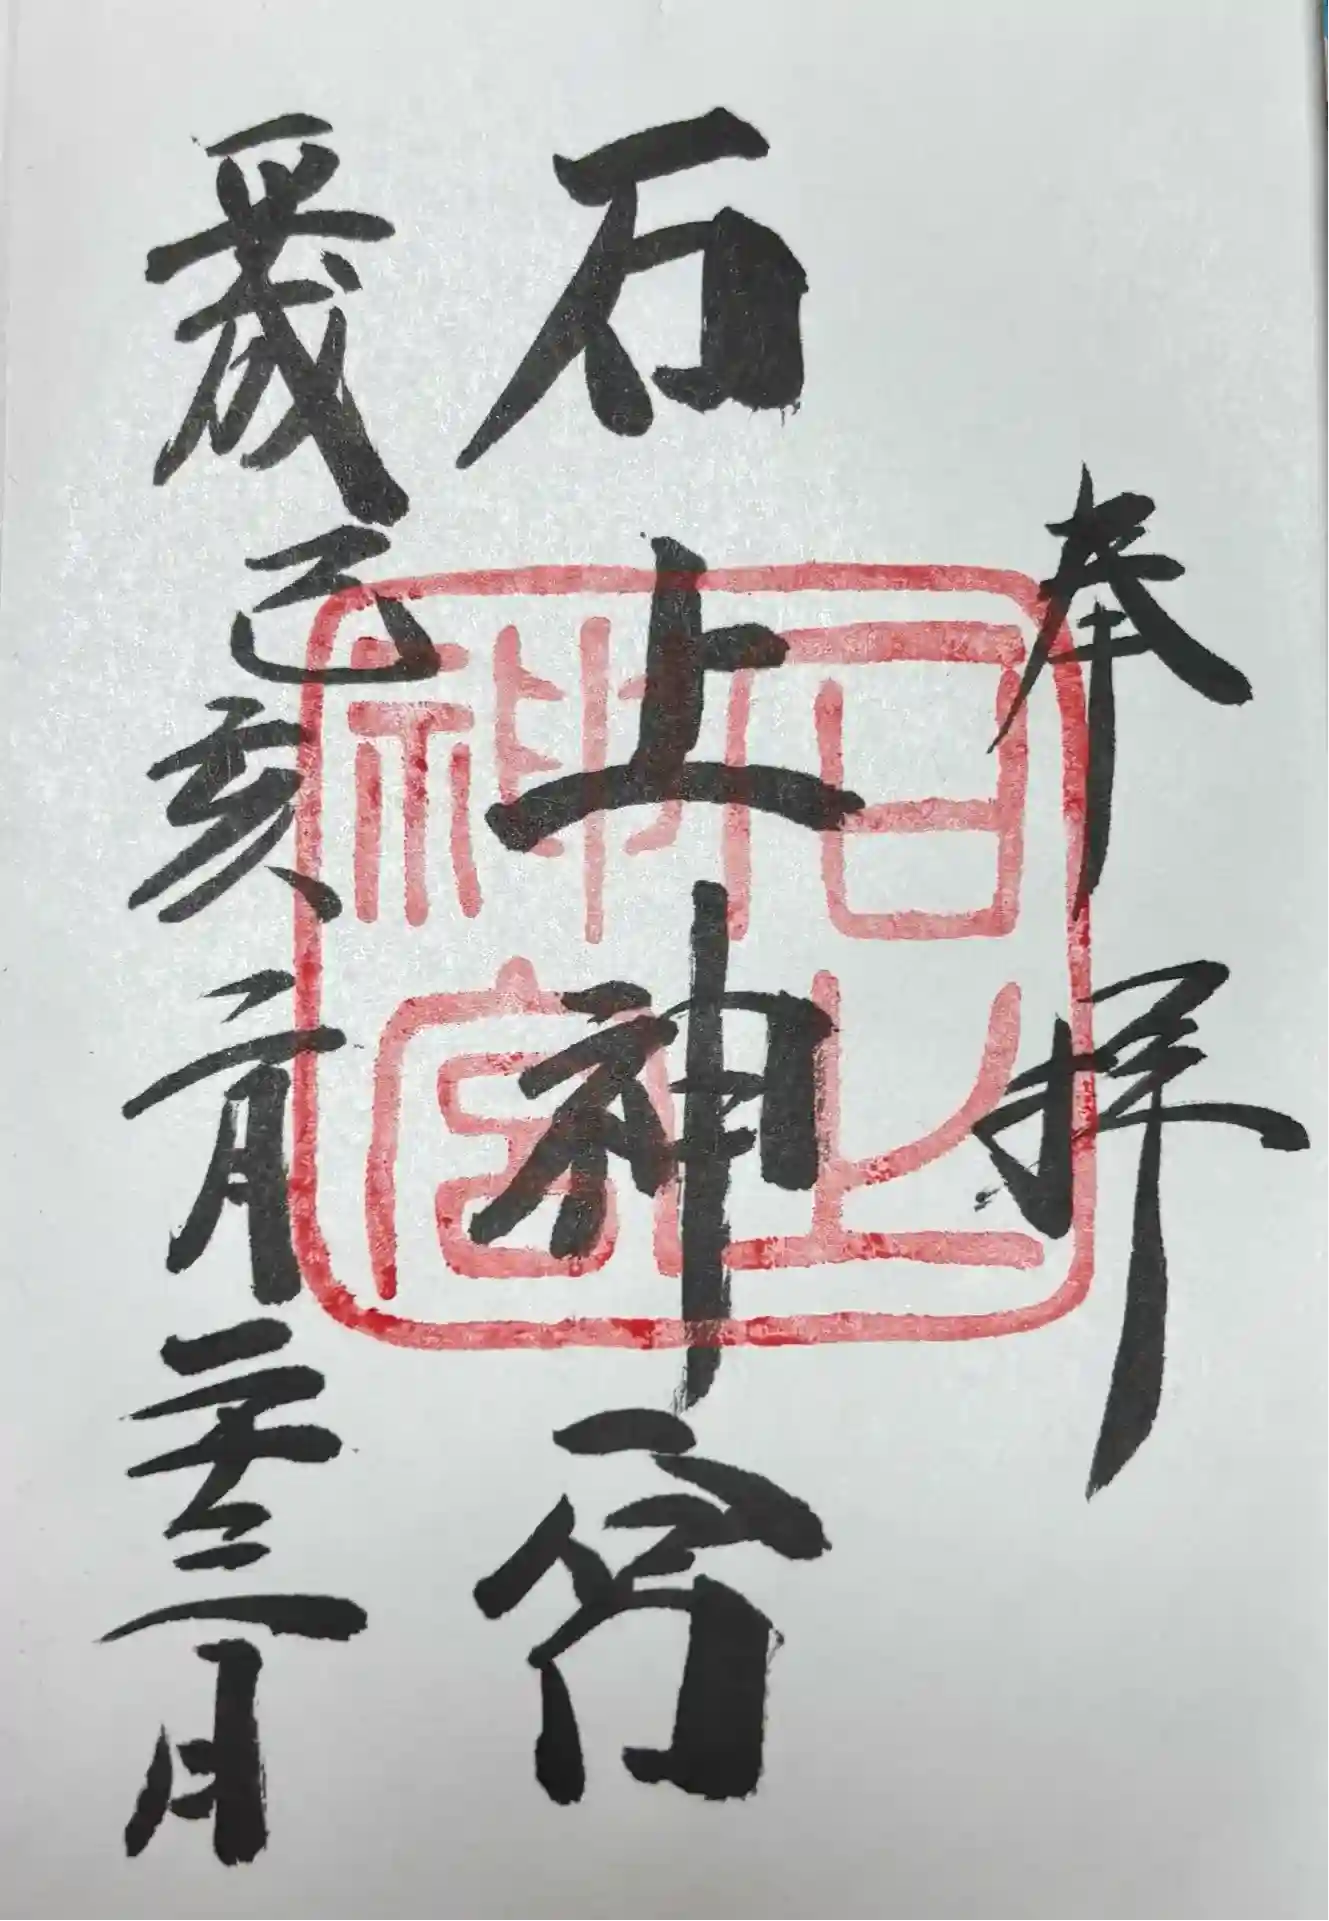 奉拝
石上神宮
歳己亥二月二十三日
石上
神宮